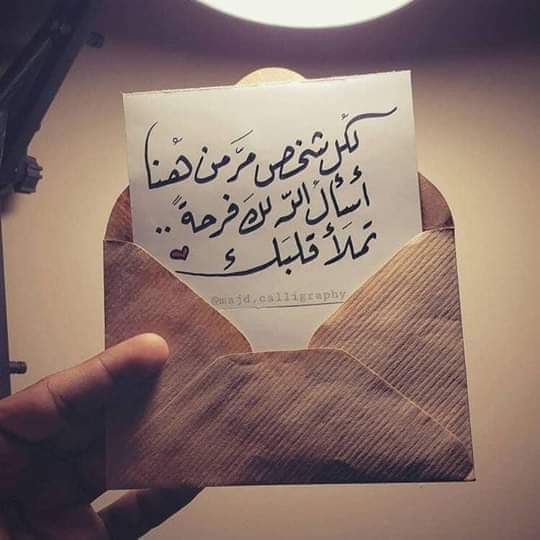 لكل شخص مرَّ من هُنا
أسألُ اللّه لكَ فرحةً ..
تملأ قلبَك
@majd.calligraphy